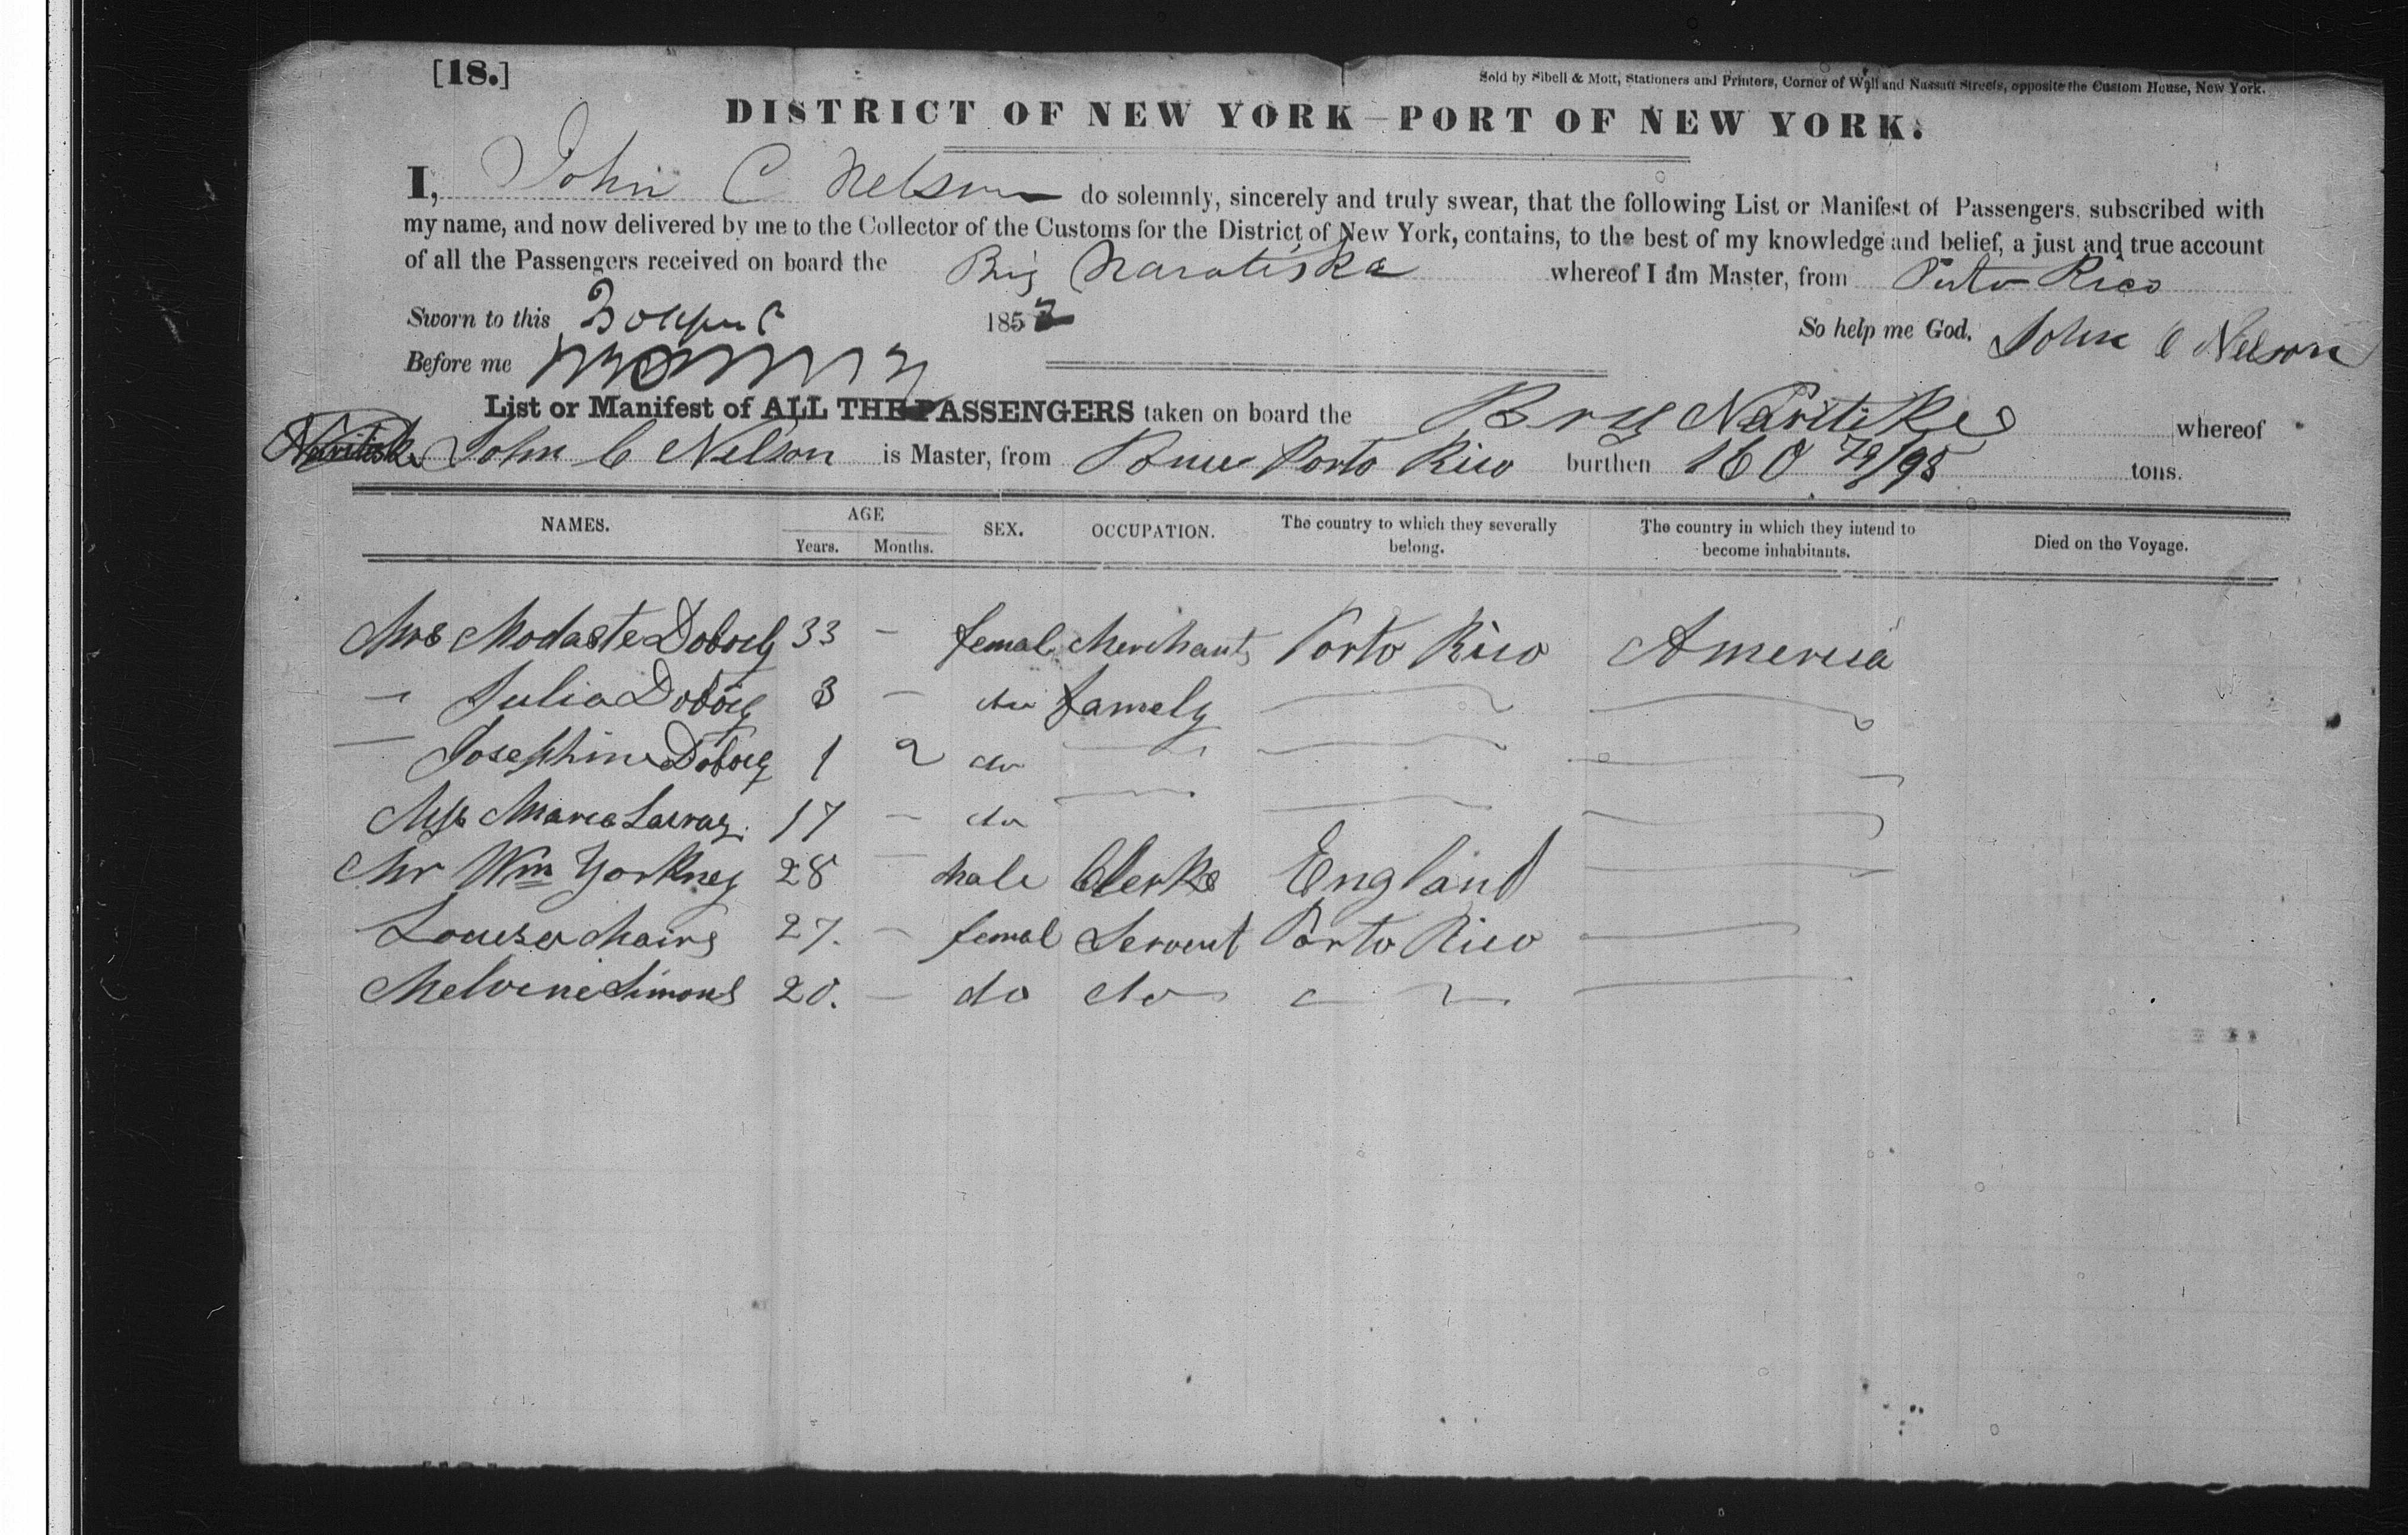 [18.]
Sold by Sibell & Mott, Stationers and Printers, Corner of Wall and Nassau Streets, opposite the Custom House, New York.
DISTRICT OF NEW YORK—PORT OF NEW YORK.
I, John C Nelson do solemnly, sincerely and truly swear, that the following List or Manifest of Passengers, subscribed with
my name, and now delivered by me to the Collector of the Customs for the District of New York, contains, to the best of my knowledge and belief, a just and true account
of all the Passengers received on board the Brig Naratiska whereof I am Master, from Porto Rico
Sworn to this 185
So help me God. John C Nelson
Before me
List or Manifest of ALL THE PASSENGERS taken on board the Brig whereof
John C Nelson is Master, from Ponce Porto Rico burthen 160 /95 tons.
NAMES. AGE Years. Months. SEX. OCCUPATION. The country to which they severally belong. The country in which they intend to become inhabitants. Died on the Voyage.
Mrs Modaste 33 – femal Merchant Porto Rico America
Julia 3 – do famely
Josephine 1 2 do
Miss Maria 17 – do
Mr Wm Yorkney 28 – male Clerk England
Louisa 27. – femal Servent Porto Rico
Melvine Simons 20. – do do